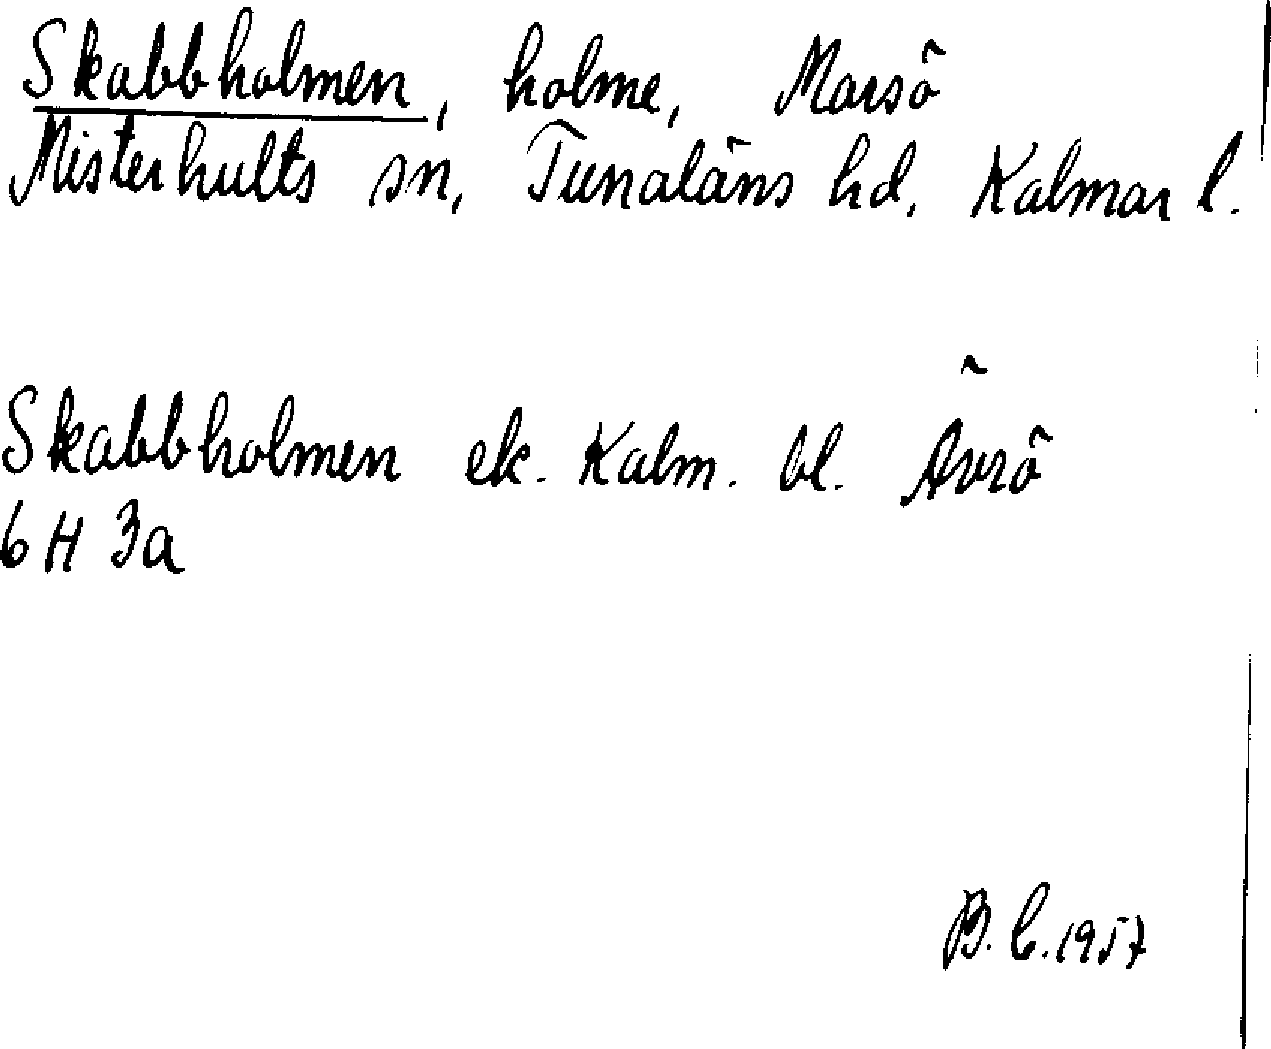 Skabbholmen, holme, Marsö
Misterhults sn, Tunaläns hd, Kalmar l.
Skabbholmen ek. Kalm. bl. Ävrö
6 H 3a
B. C. 1957